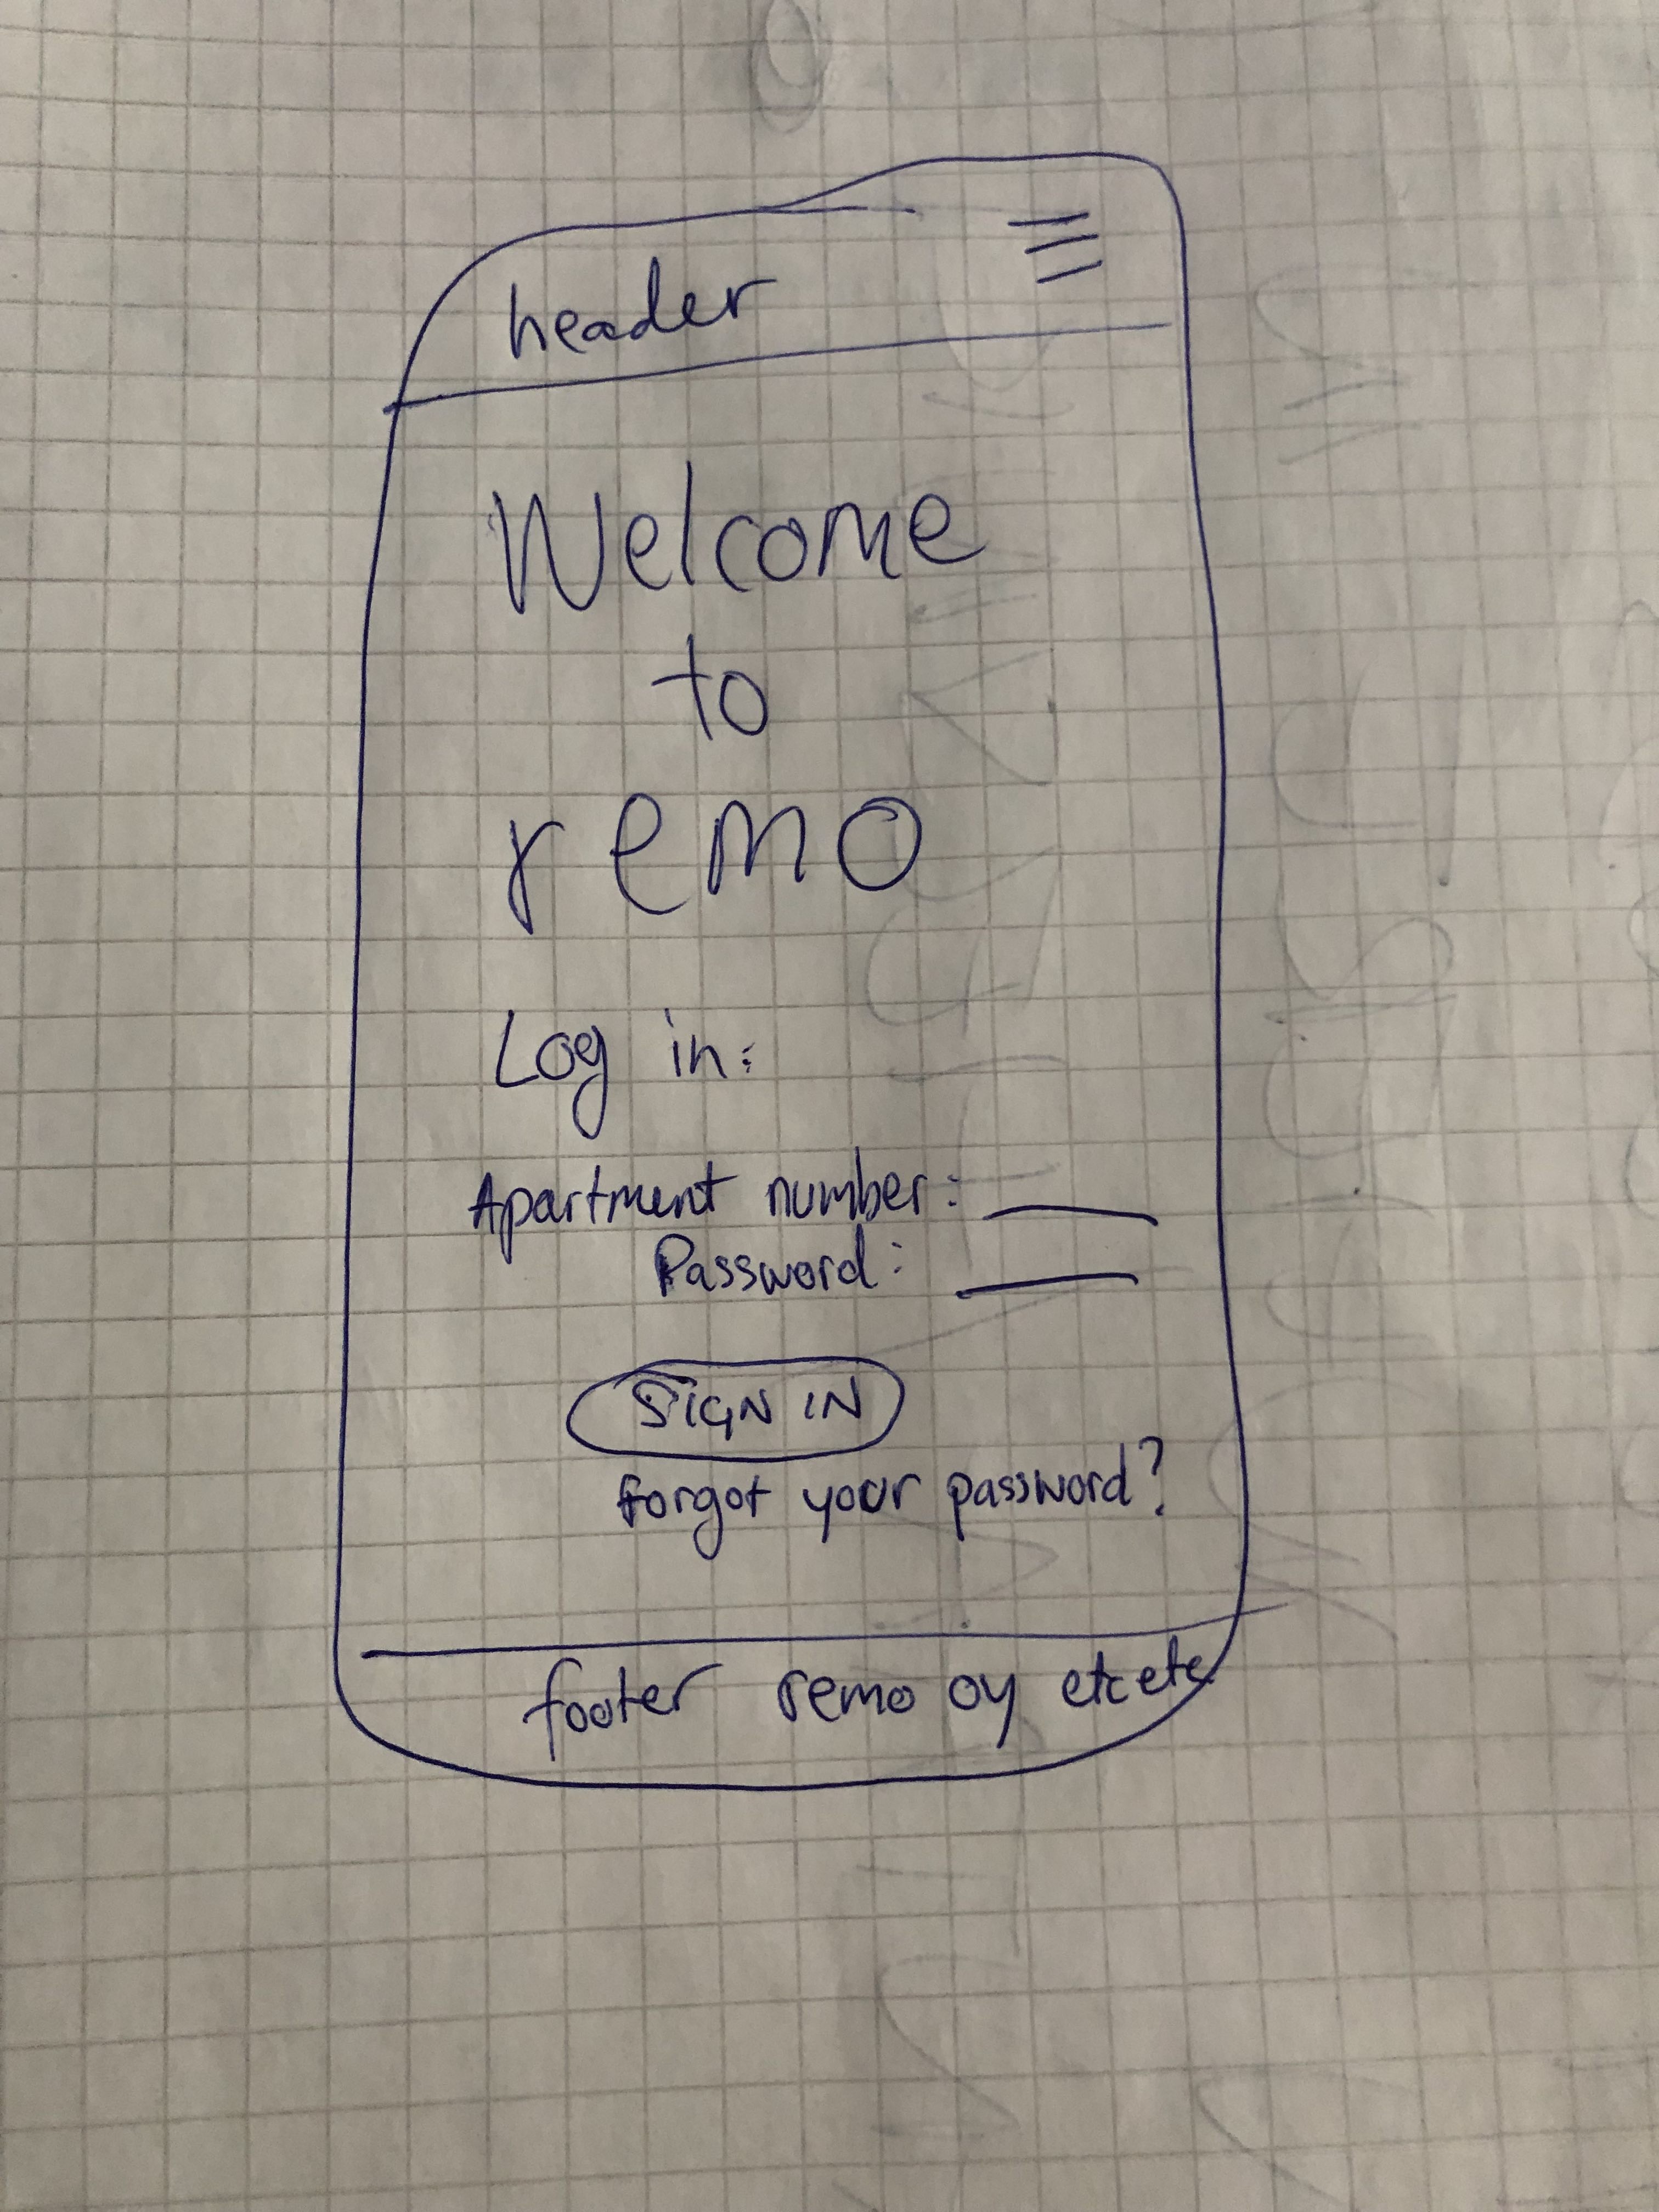 header
Welcome
to
remo
Log in:
Apartment number:
Password:
SIGN IN
forgot your password?
footer remo oy etcete